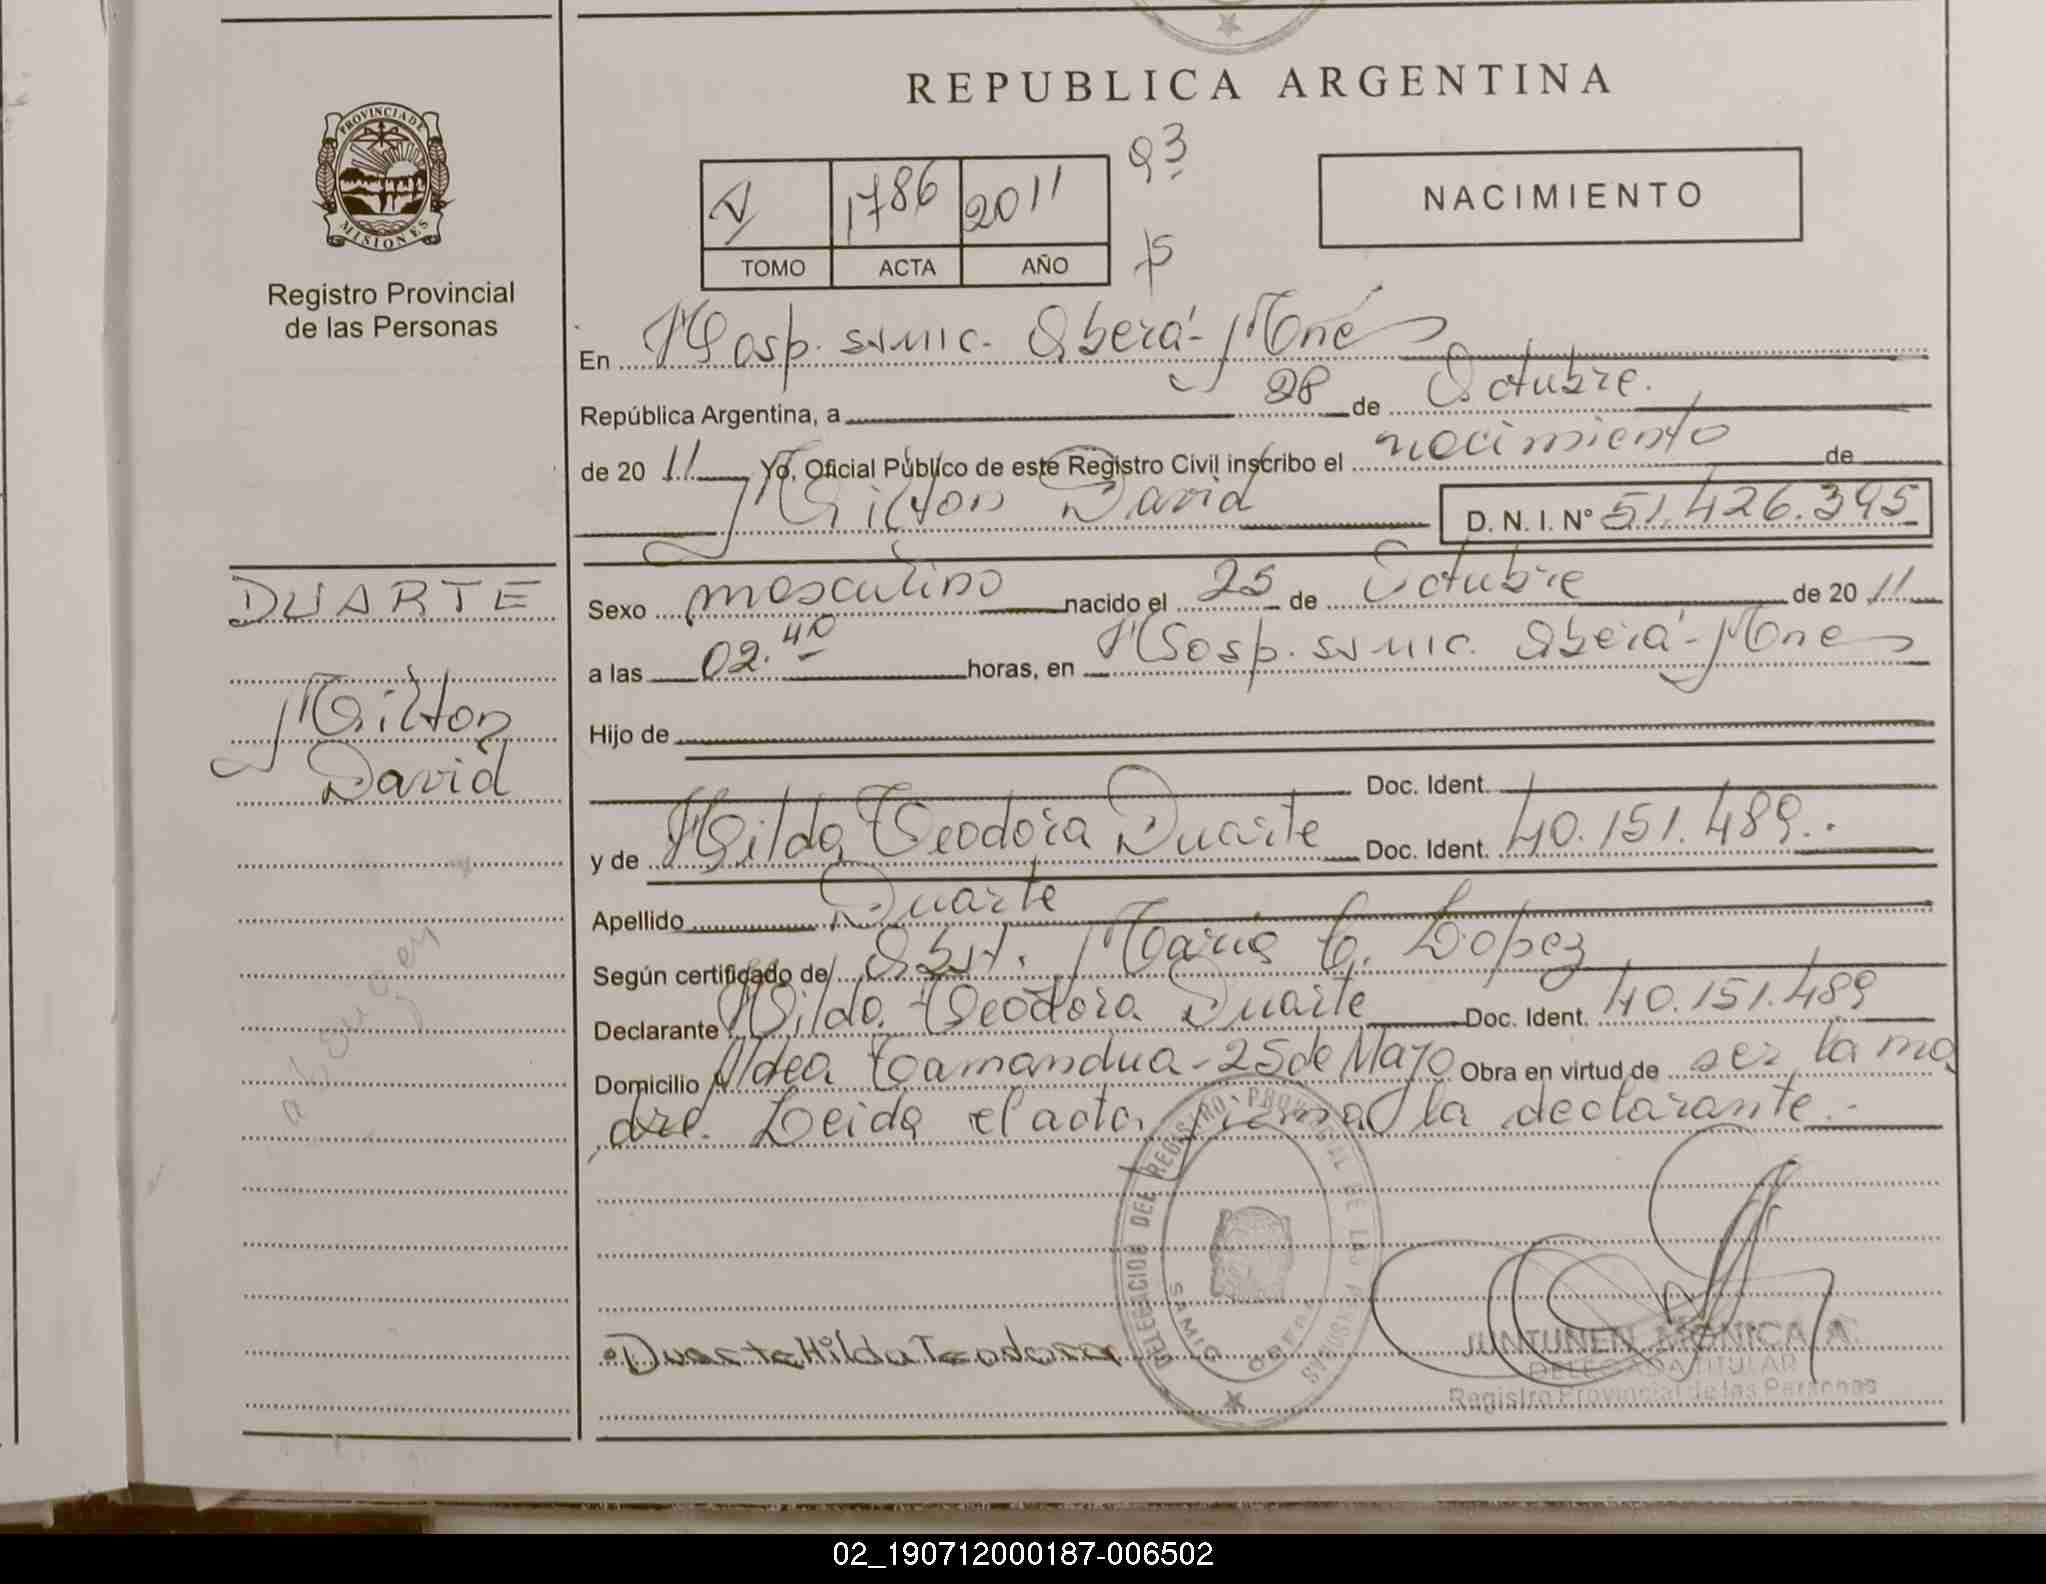 REPUBLICA ARGENTINA
PROVINCIA DE
MISIONES
Registro Provincial
de las Personas
93
V 1786 2011
TOMO ACTA AÑO
NACIMIENTO
En Hosp. ssmic. Oberá-Mnes
República Argentina, a 28 de Octubre.
de 20 11 Yo, Oficial Público de este Registro Civil inscribo el nacimiento de
Milton David D. N. I. N° 51.426.395
DUARTE
Milton
David
Sexo masculino nacido el 25 de Octubre de 20 11
a las 02.40 horas, en Hosp. ssmic. Oberá-Mnes
Hijo de
Doc. Ident.
y de Hilda Teodora Duarte Doc. Ident. 40.151.489.-
Apellido Duarte
Según certificado de Obst. María C. Lopez
Declarante Hilda Teodora Duarte Doc. Ident. 40.151.489
Domicilio Aldea Tamandua-25 de Mayo Obra en virtud de ser la ma
dre. Leida el acta firma la declarante.-
DELEGACION DEL REGISTRO PROVINCIAL DE LAS PERSONAS
Duarte Hilda Teodora
JUNTUNEN MONICA A.
DELEGADA TITULAR
Registro Provincial de las Personas
02_190712000187-006502